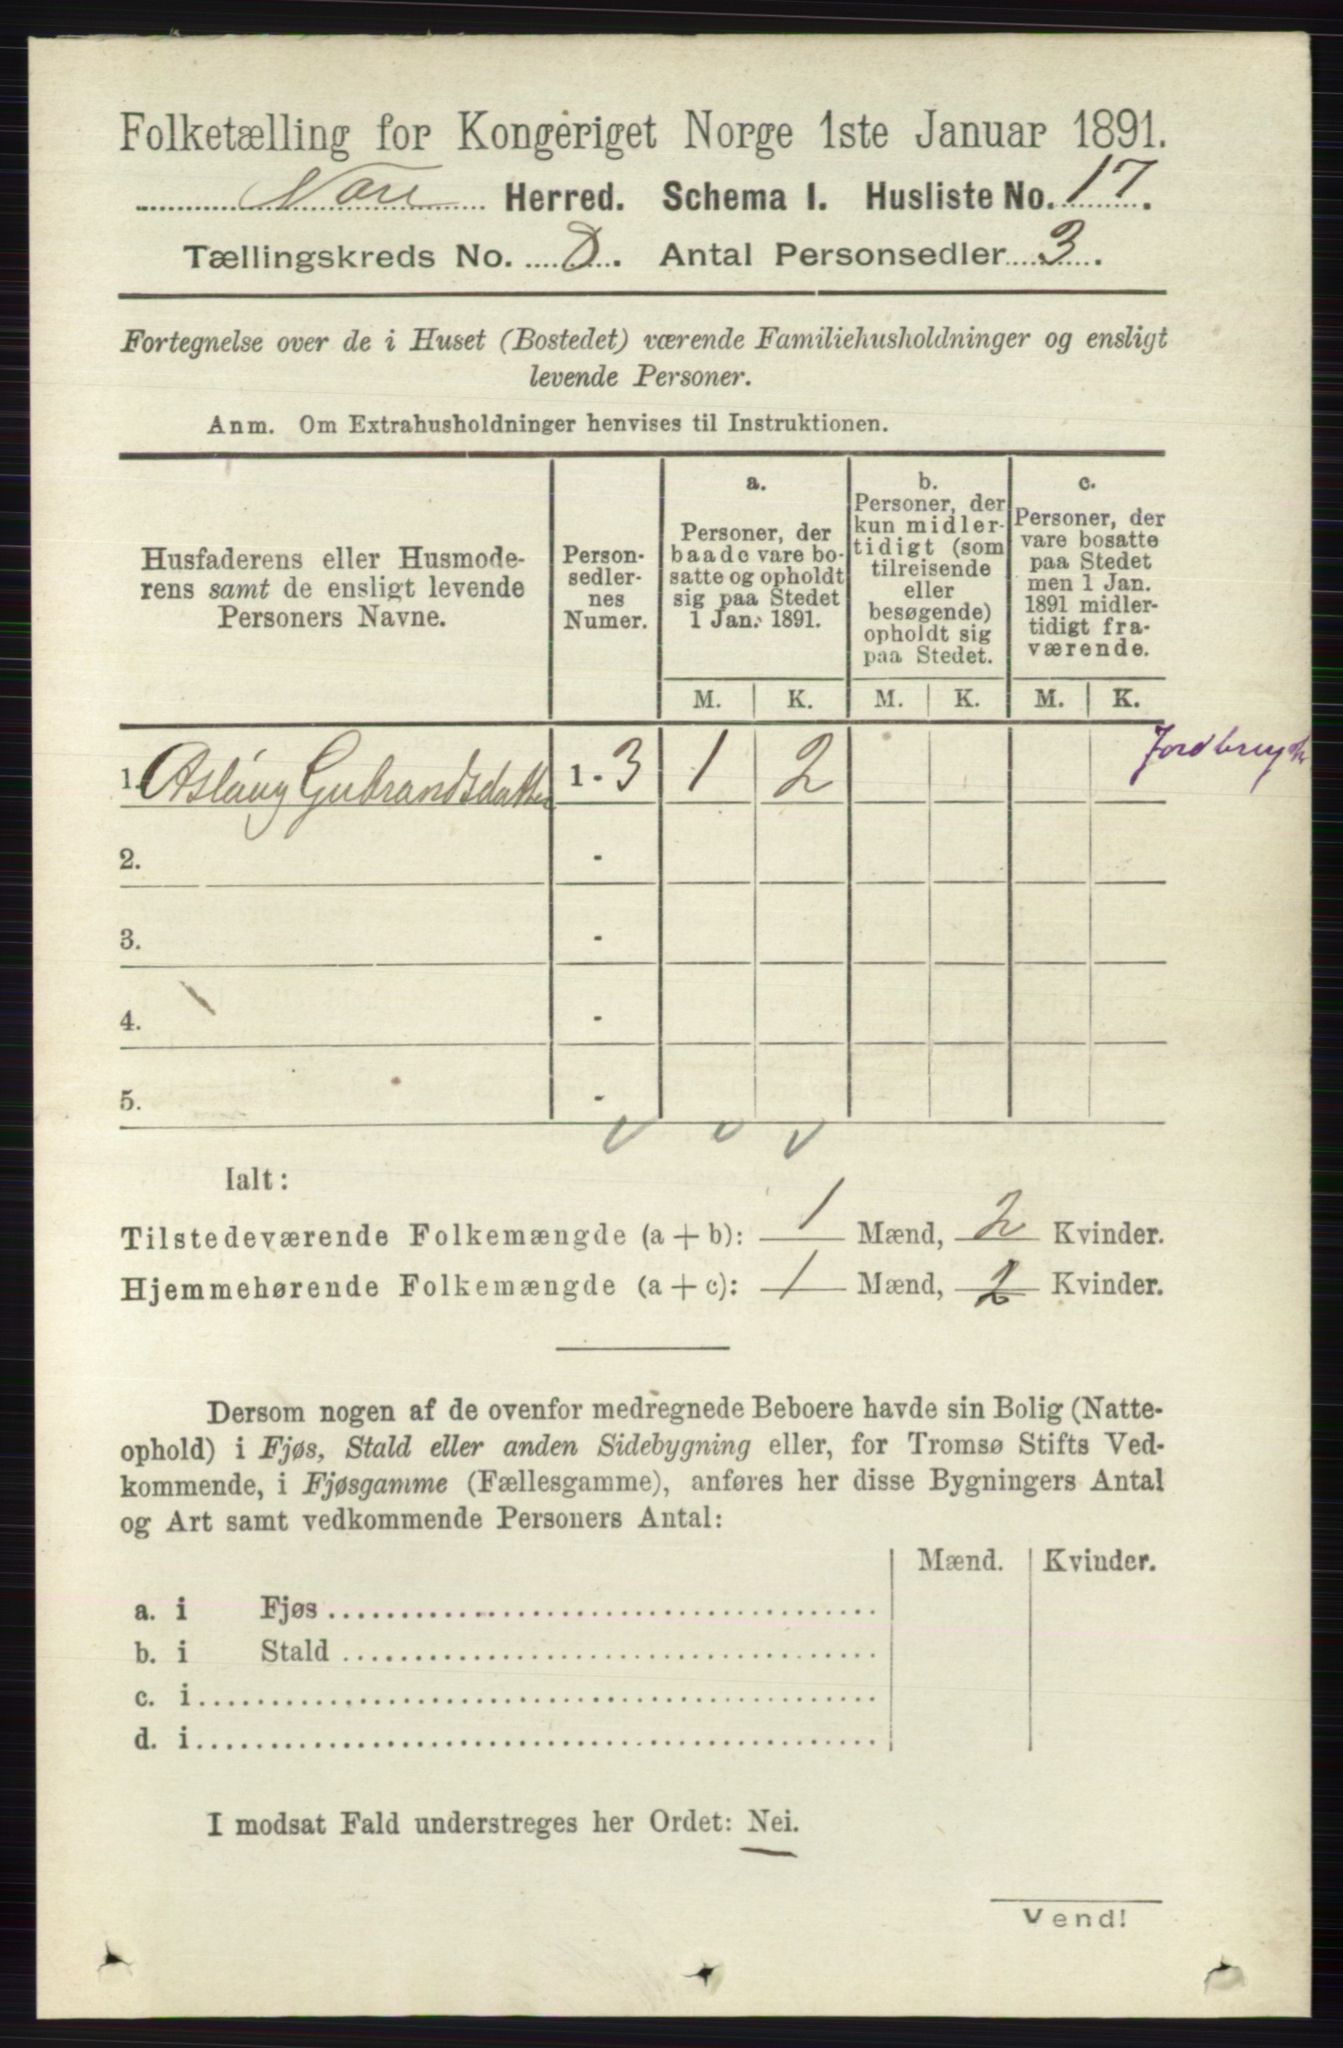 Folketælling for Kongeriget Norge 1ste Januar 1891.
Nore Herred. Schema I. Husliste No. 17.
Tællingskreds No. 8. Antal Personsedler 3.
Fortegnelse over de i Huset (Bostedet) værende Familiehusholdninger og ensligt
levende Personer.
Anm. Om Extrahusholdninger henvises til Instruktionen.
Husfaderens eller Husmode-
rens samt de ensligt levende
Personers Navne.
Person-
sedler-
nes
Numer.
a.
Personer, der
baade vare bo-
satte og opholdt
sig paa Stedet
1 Jan. 1891.
b.
Personer, der
kun midler-
tidigt (som
tilreisende
eller
besøgende)
opholdt sig
paa Stedet.
c.
Personer, der
vare bosatte
paa Stedet
men 1 Jan.
1891 midler-
tidigt fra-
værende.
M. K. M. K. M. K.
1. Aslaug Gubrandsdatter 1 - 3 1 2
2. -
3. -
4. -
5. -
Ialt:
Tilstedeværende Folkemængde (a + b): 1 Mænd, 2 Kvinder.
Hjemmehørende Folkemængde (a + c): 1 Mænd, 2 Kvinder.
Dersom nogen af de ovenfor medregnede Beboere havde sin Bolig (Natte-
ophold) i Fjøs, Stald eller anden Sidebygning eller, for Tromsø Stifts Ved-
kommende, i Fjøsgamme (Fællesgamme), anføres her disse Bygningers Antal
og Art samt vedkommende Personers Antal:
Mænd. Kvinder.
a. i Fjøs
b. i Stald
c. i
d. i
I modsat Fald understreges her Ordet: Nei.
Vend!